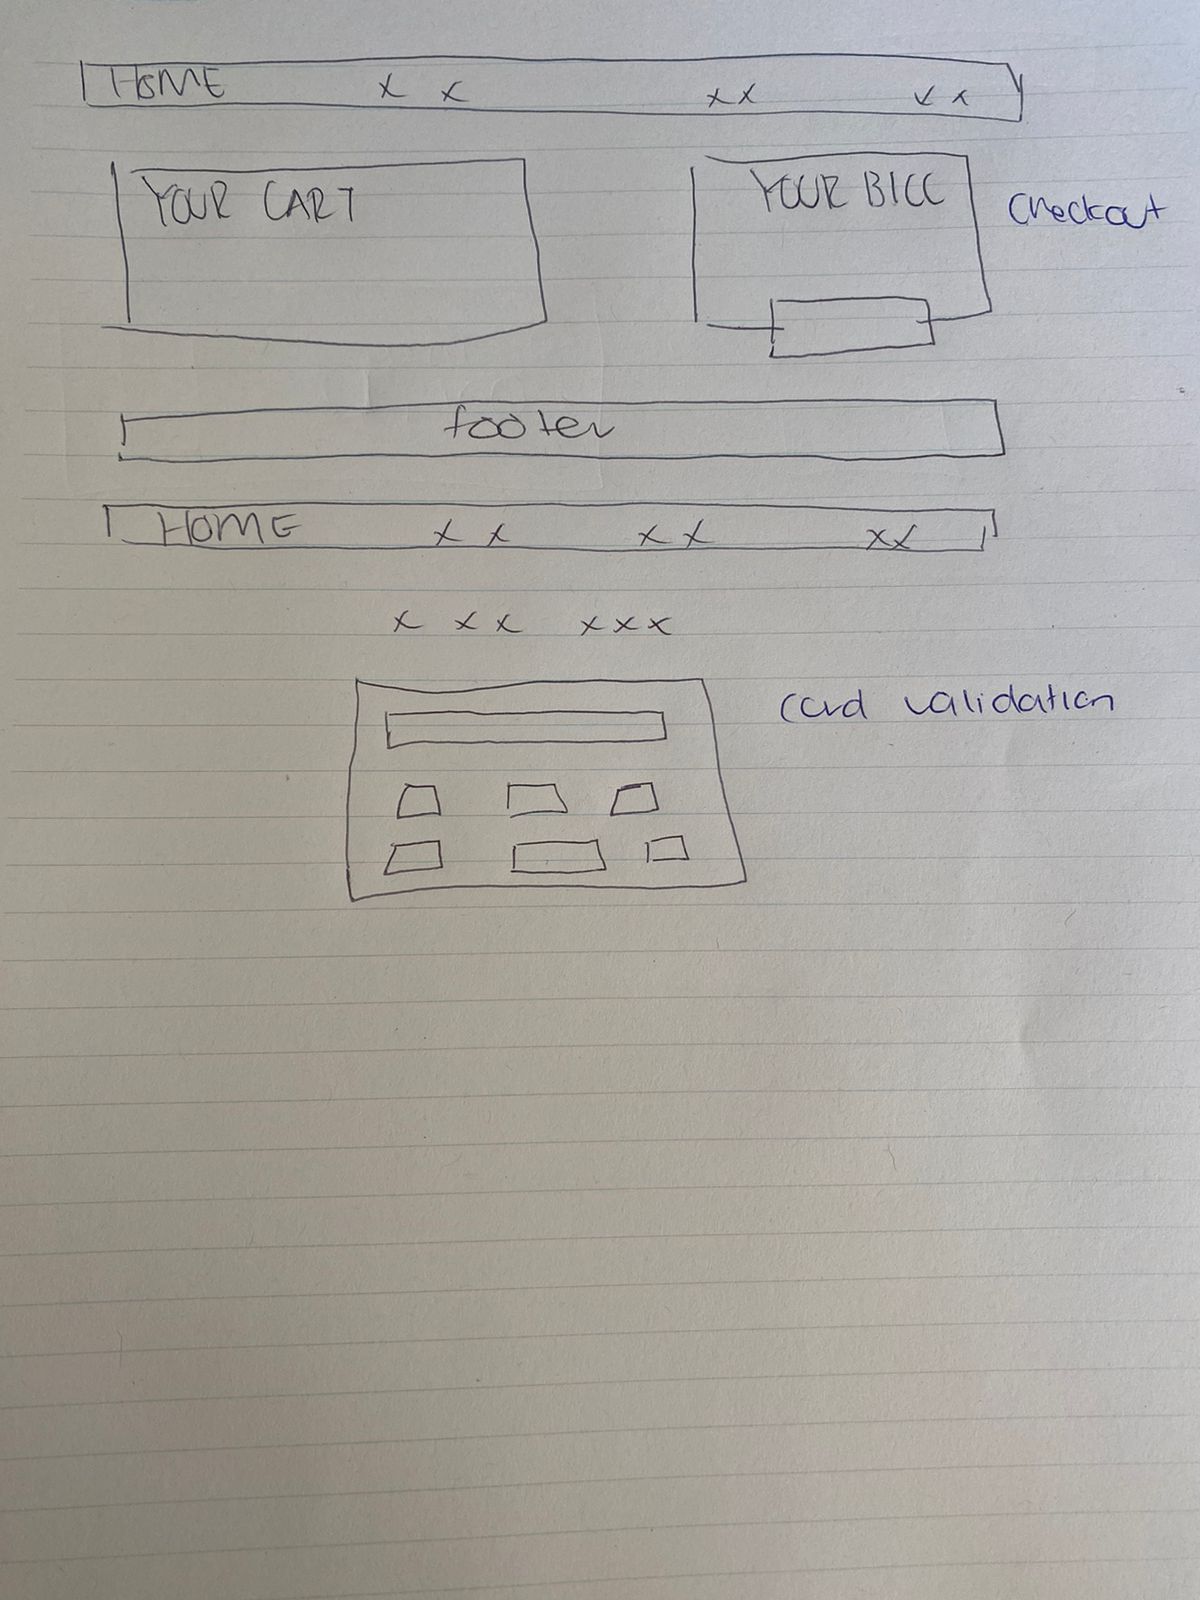 HOME x x xx x x
YOUR CART
YOUR BILL
Checkout
footer
HOME x x x x xx
x x x x x x
card validation